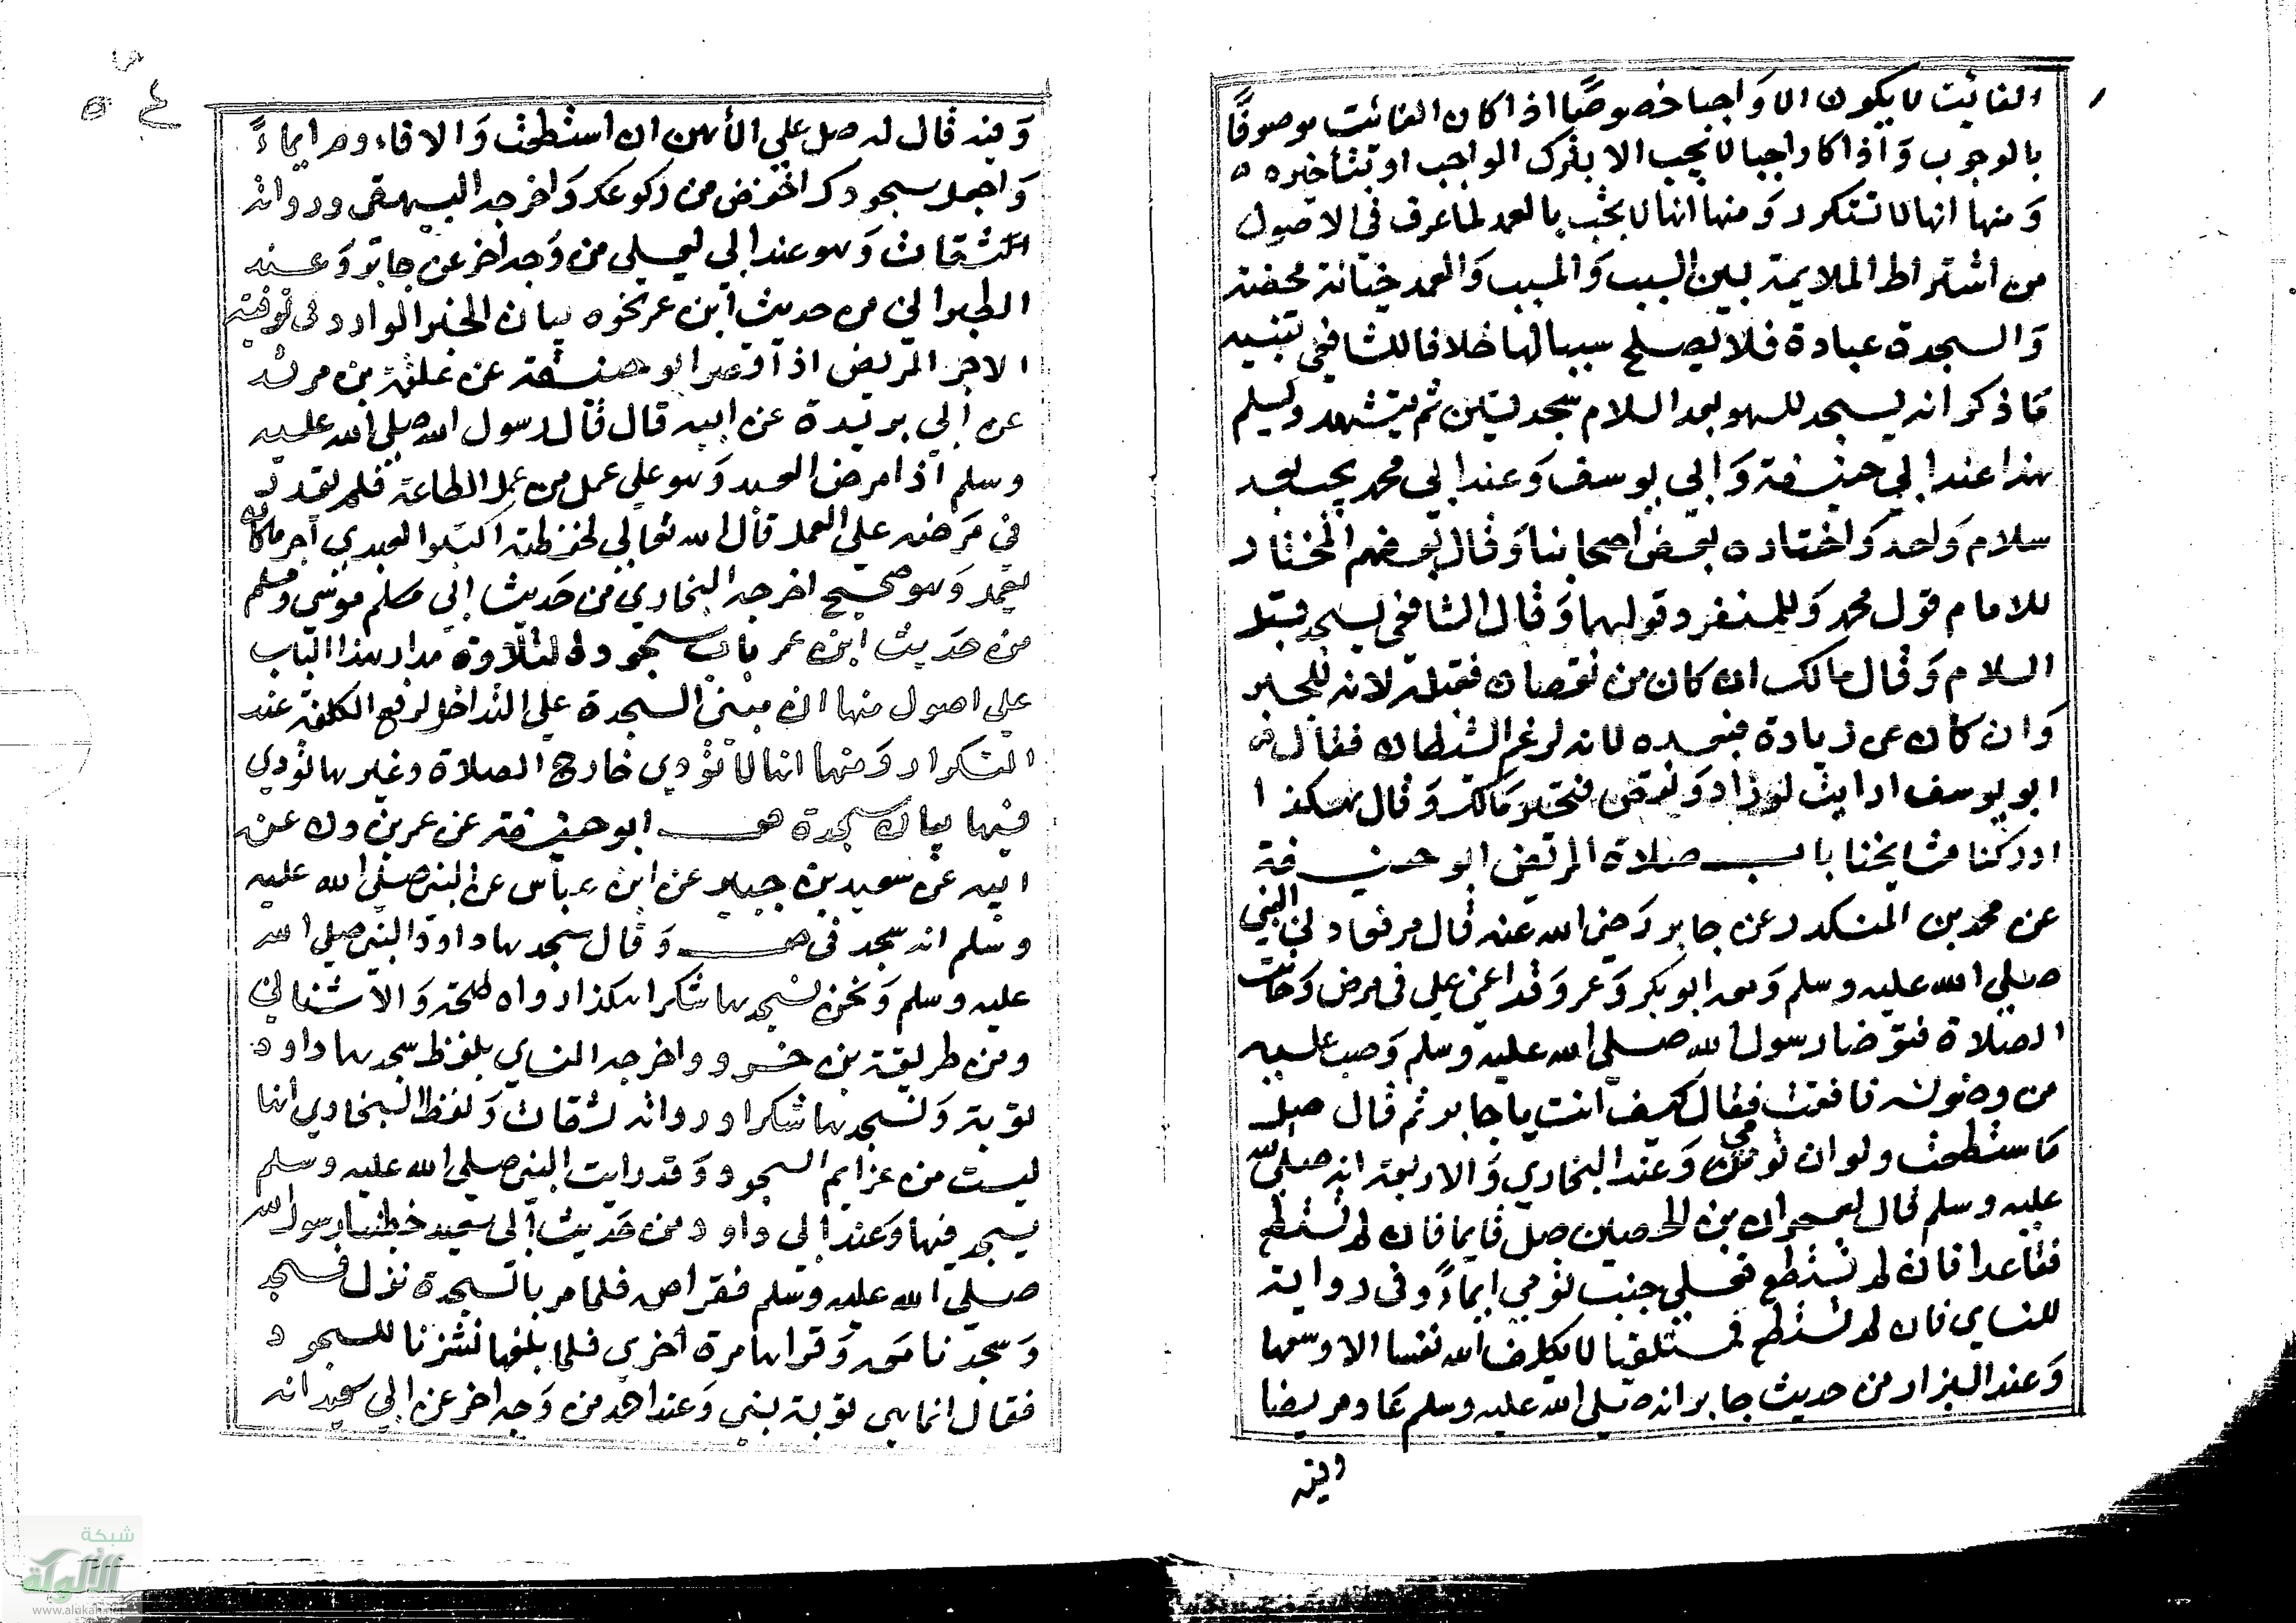 الفائت لا يكون الا واجبا خصوصًا اذا كان الفائت موصوفًا
بالوجوب وَاذا كا واجبا لا يجب الا بترك الواجب او بتاخيره ه
وَمنها انها لا تتكرر وَمنها انها لا يجب بالعمد لما عرف في الاصول
من اشتراط الملايمة بين السبب وَالمسبب وَالعمد خيانة محضة
وَالسجدة عبادة فلا يصلح سببا لها خلافا للشافعي تنبيه
مَا ذكر انه يسجد للسهو بعد السلام سجدتين ثم يتشهد ويسلم
هذا عند ابي حنيفة وَابي يوسف وَعند ابي محمد يجب بعد
سلام وَاحد وَاختاره بعض اصحابنا وَقال بعضهم المختار
للامام قول محمد وَللمنفرد قولهما وَقال الشافعي يسجد قبل
السلام وَقال مالك ان كان من نقصان فقبله لانه للجبر
وَان كان عن زيادة فبعده لانه لرغم الشيطان فقال له
ابو يوسف ارايت لو زاد وَنقص فتحير مَالك وَقال هكذا
ادركنا مشايخنا باب صلاة المريض ابو حنيفة
عن محمد بن المنكدر عن جابر رَضي الله عنه قال مرضت فعادني النبي
صلي الله عليه وسلم وَمعه ابو بكر وَعمر وَقد اغمي علي في مرضي وَحانت
الصلاة فتوضا رسول الله صلي الله عليه وسلم وَصب عليه
من وضوئه فافقت فقال كيف انت يا جابر ثم قال صل
مَا ستطعت ولو ان تومي وَعند البخاري وَالاربعة انه صلي الله
عليه وسلم قال لعمران بن الحصين صل قايما فان لم تستطع
فقاعدا فان لم تستطع فعلي جنب تومي ايماءً وفي رواية
للنساي فان لم تستطع فمستلقيا لا يكلف الله نفسا الا وسعها
وَعند البزار من حديث جابر انه صلي الله عليه وسلم عَاد مريضا
وفيه
وَفيه قال له صل علي الأرض ان استطعت وَالا فاوم ايماءً
وَاجعل سجودك اخفض من ركوعك وَاخرجه البيهقي ورواته
الثقات وَهو عند ابي يعلي من وَجه اخر عن جابر وَعند
الطبراني من حديث ابن عمر نحوه بيان الخبر الوارد في توفية
الاجر المريض ابو حنيفة عن علقمة بن مرثد
عن ابي بريدة عن ابيه قال قال رسول الله صلي الله عليه
وسلم اذا مرض العبد وَهو علي عمل من عمل الطاعة فلم يقدر
في مَرضه علي العمل قال الله تعالي لحفظته اكتبوا لعبدي اجر ما كان
يعمل وَهو صحيح اخرجه البخاري من حَديث ابي موسي ومسلم
من حَديث ابن عمر باب سجود التلاوة مدار هذا الباب
علي اصول منها ان مبني السجدة علي التداخل لرفع الكلفة عند
التكرار وَمنها انها لا تؤدي خارج الصلاة وغيرها تؤدي
فيها بيان سجدة ص ابو حنيفة عن عمر بن ذر عن
ابيه عن سعيد بن جبير عن ابن عباس عن النبي صلي الله عليه
وسلم انه سجد في ص وَقال سجدها داود النبي صلي الله
عليه وسلم وَنحن نسجدها شكرا هكذا رواه طلحة وَالاشناني
ومن طريقة بن خسرو واخرجه النساي بلفظ سجدها داود
توبة وَنسجدها شكرا ورواته ثقات وَلفظ البخاري انها
ليست من عزايم السجود وَقد رايت النبي صلي الله عليه وسلم
يسجد فيها وَعند ابي داود من حَديث ابي سعيد خطبنا رسول الله
صلي الله عليه وسلم فقرا ص فلما مر بالسجدة نزل فسجد
وَسجدنا مَعه وَقراها مرة اخري فلما بلغها نشزنا للسجود
فقال انما هي توبة نبي وَعند احمد من وَجه اخر عن ابي سعيد انه
شبكة
الألوكة
www.alukah.net